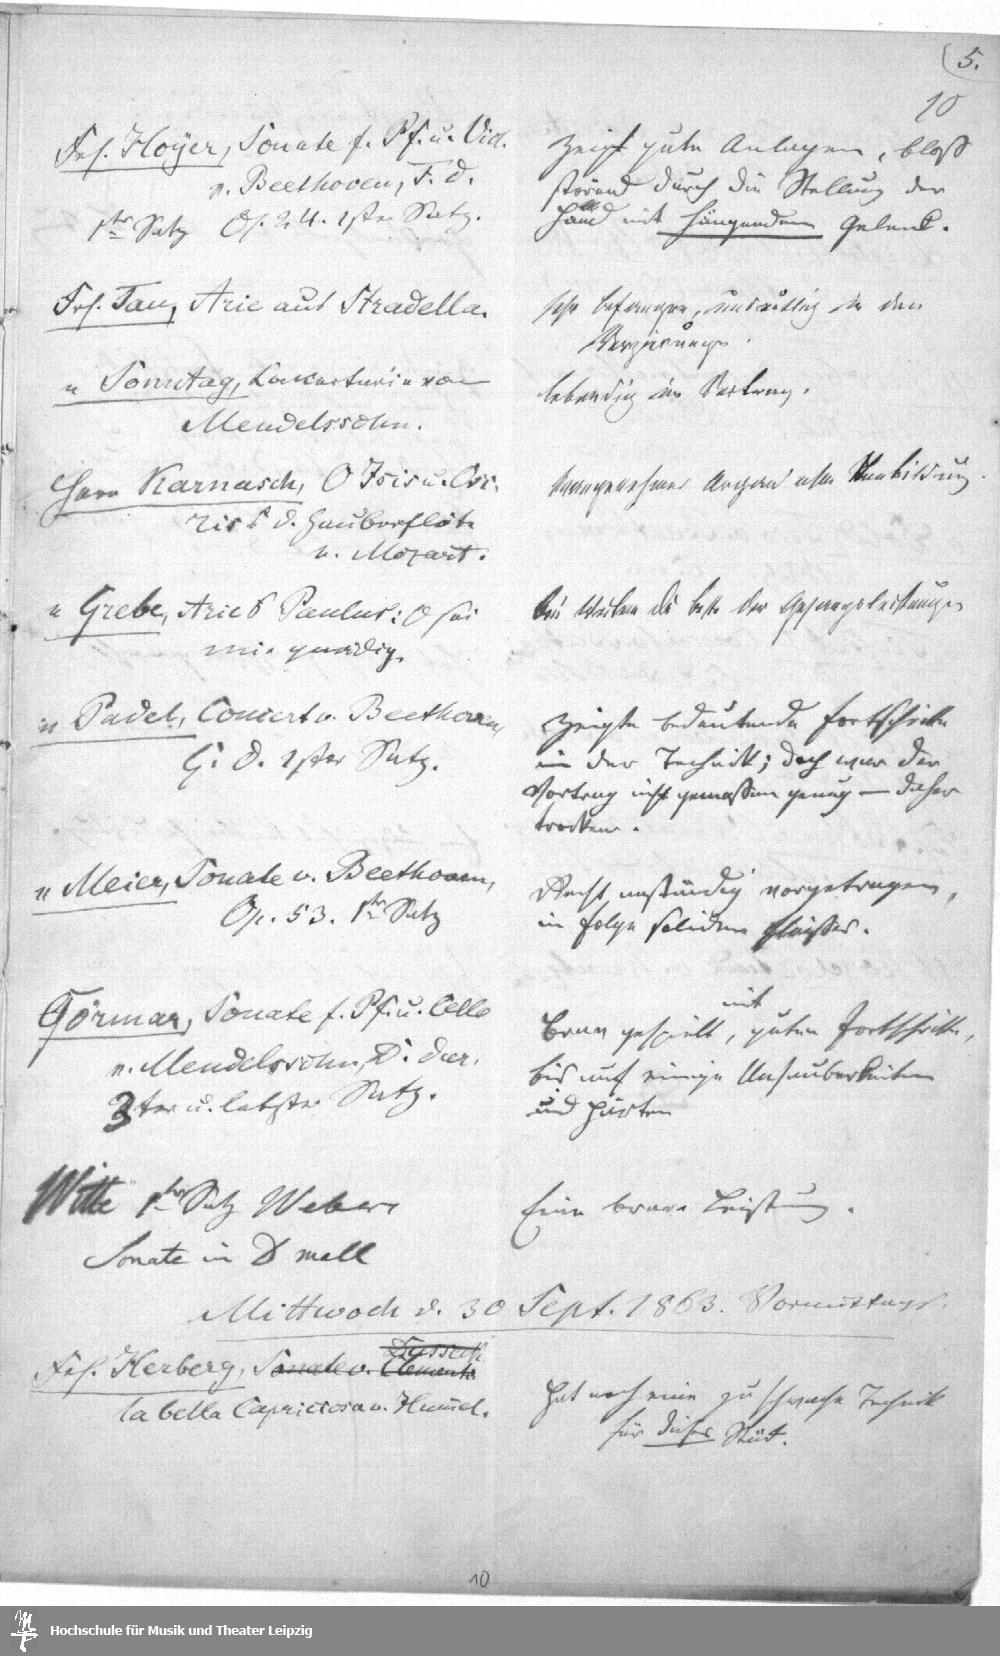 (5.
10
Frl. Hoÿer, Sonate f. Pf. u. Viol.
v. Beethoven, F. d.
1ster Satz Op. 24. 1ster Satz.
Zeigt gute Anlagen, bloß
störend durch die Stellung der
Hand mit hängendem Gelenk.
Frl. Tau, Arie aus Stradella.
sehr befangen, undeutlich in den
Verzierungen.
" Sonntag, Concertarie von
Mendelssohn.
lebendig im Vortrag.
Herr Karnasch, O Isis u. Osi-
ris d. Zauberflöte
v. Mozart.
Organ ohne Ausbildung.
" Grebe, Arie Paulus: O sei
mir gnädig.
die beste der Gesangsleistungen
" Padel, Concert v. Beethoven,
G. d. 1ster Satz.
Zeigte bedeutende Fortschritte
in der Technik; doch war der
Vortrag nicht gemessen genug — daher
trocken.
" Meier, Sonate v. Beethoven,
Op. 53. 1ter Satz
Recht anständig vorgetragen,
in Folge soliden Fleißes.
Görmar, Sonate f. Pf. u. Cello
v. Mendelssohn, D. dur.
3ter u. letzter Satz.
mit
Brav gespielt, guten Fortschritten,
bis auf einige Unsauberkeiten
und Härten
Witte 1ter Satz Webers
Sonate in D moll
Eine brave Leistung.
Mittwoch d. 30 Sept. 1863. Vormittags.
Dussek
Frl. Herberg, Sonate v. Clementi
la bella Capricciosa v. Hummel.
Hat noch eine zu schwache Technik
für dieses Stück.
10
Hochschule für Musik und Theater Leipzig